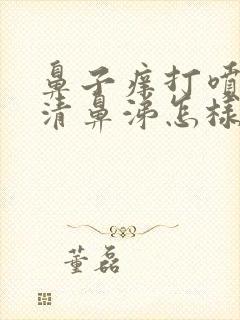 鼻子痒打喷
清鼻涕怎样
董磊